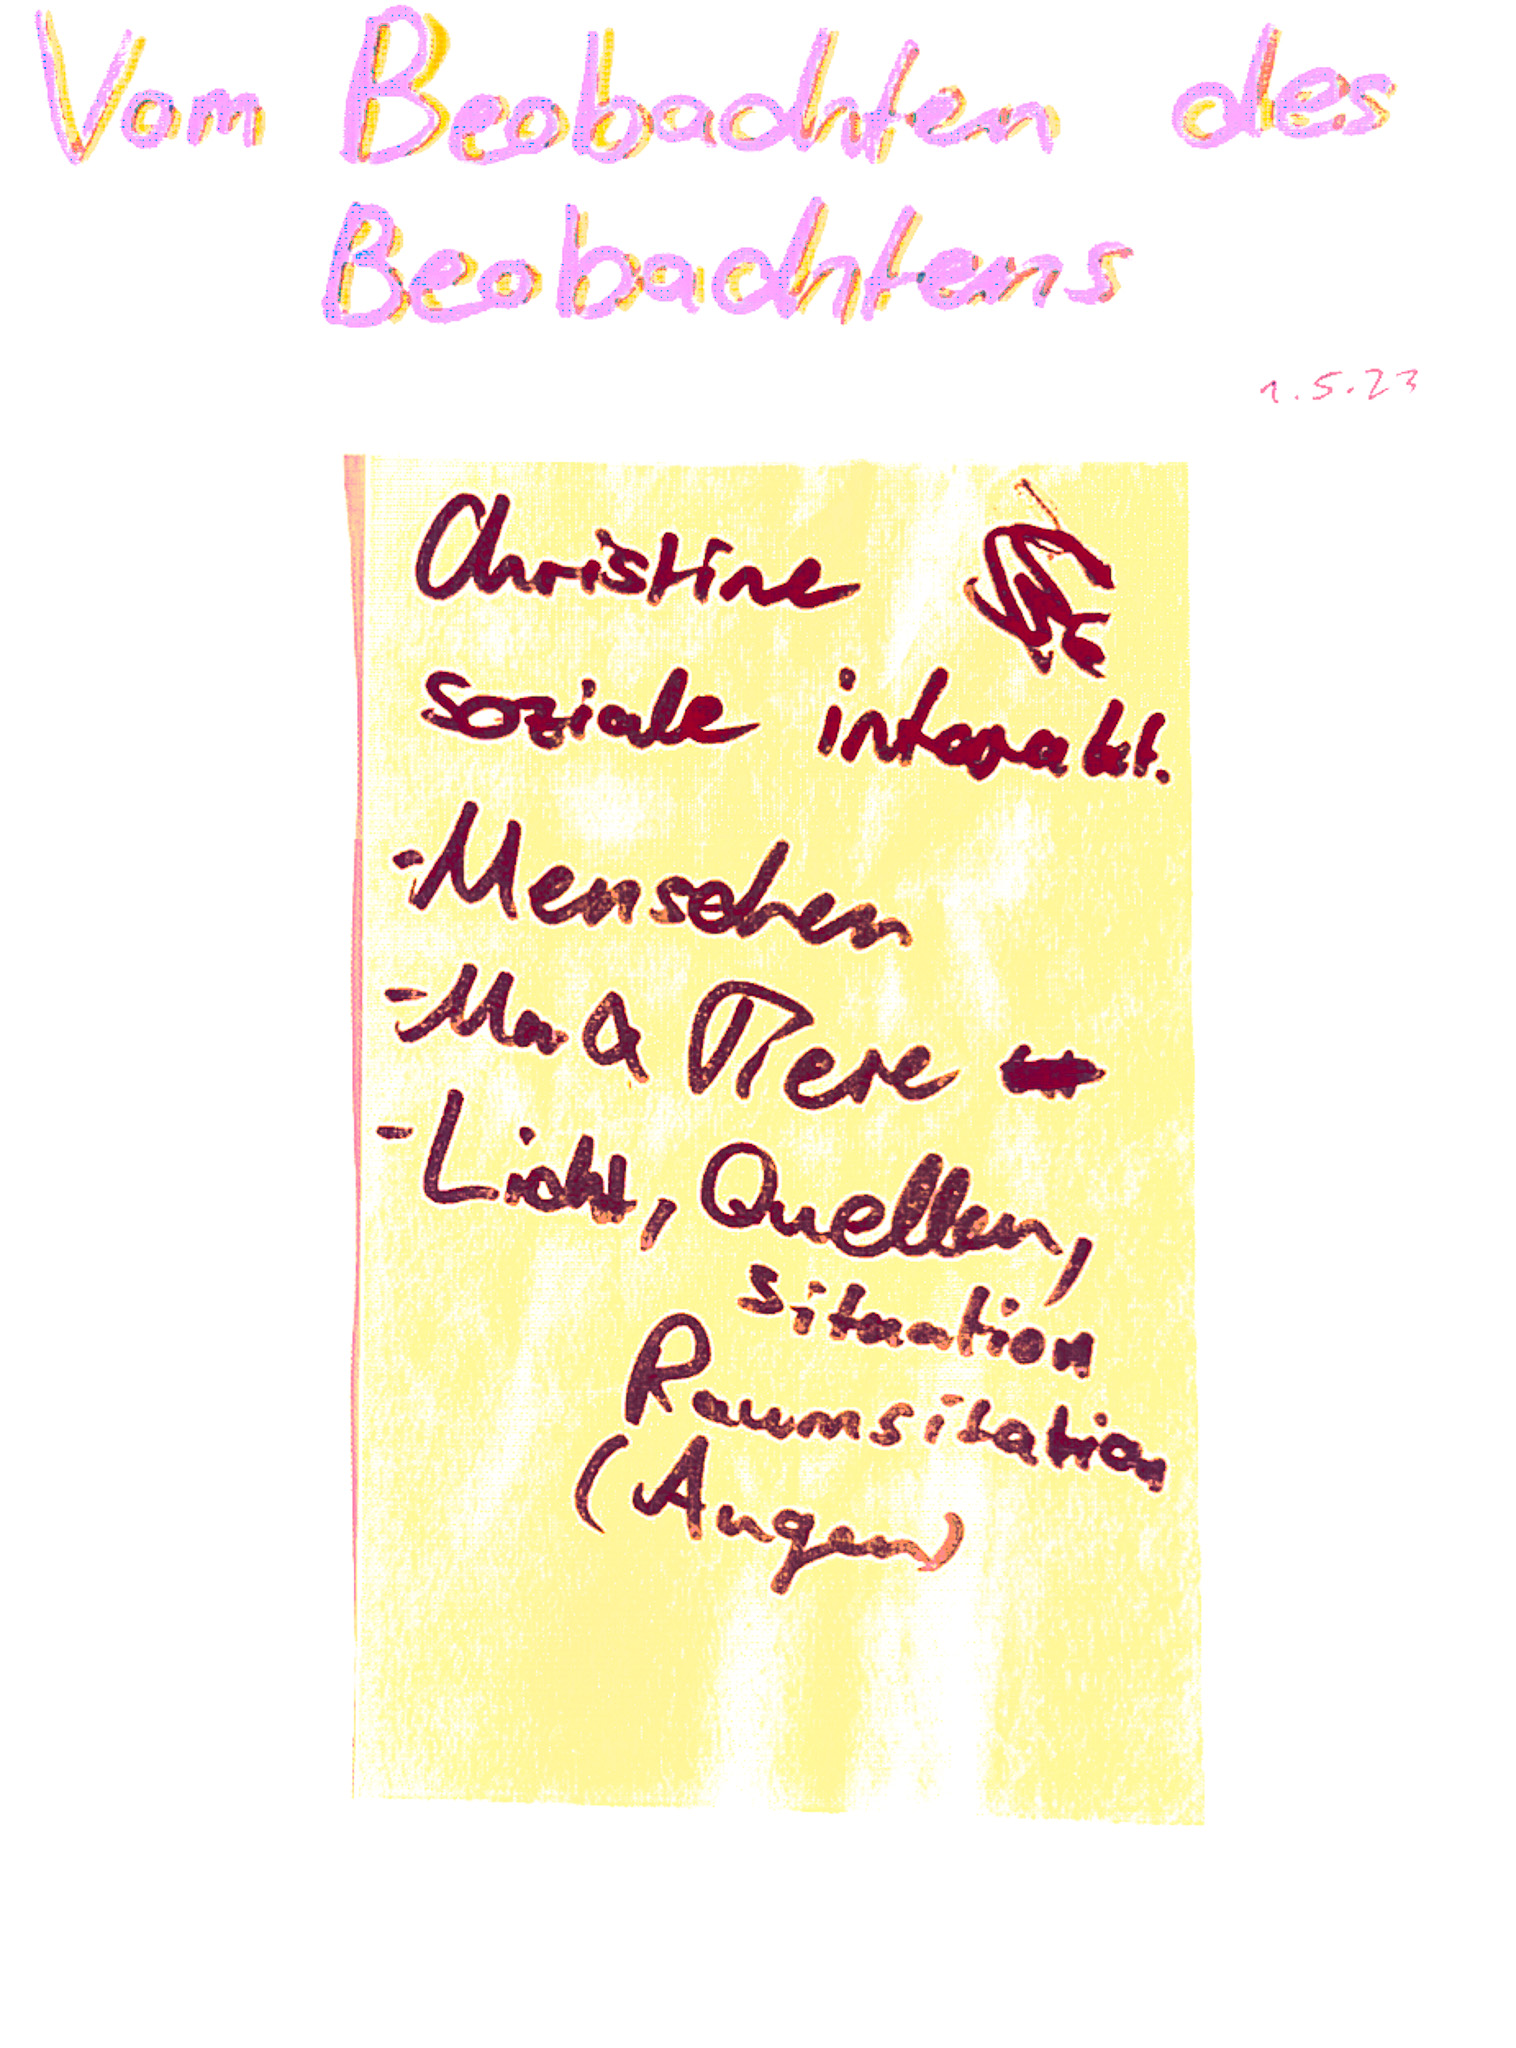 Vom Beobachten des
Beobachtens
1.5.23
Christine
soziale interakt.
- Menschen
- M & Tiere
- Licht, Quellen,
situation
Raumsitation
(Augen)